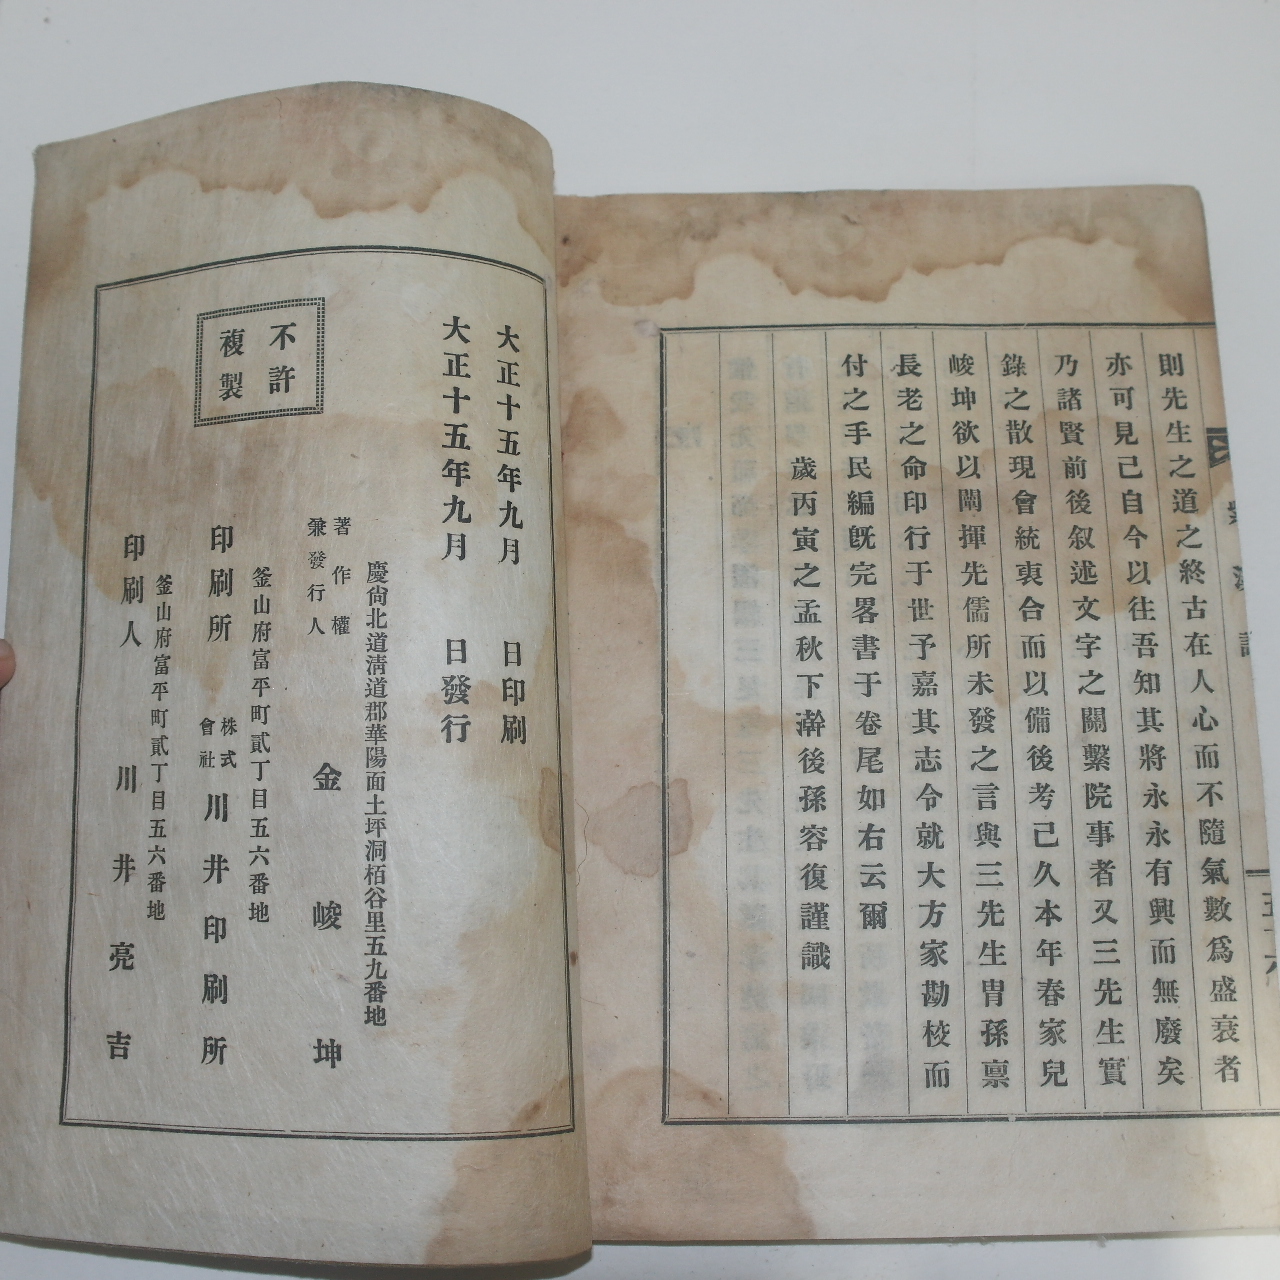 則先生之道之終古在人心而不隨氣數爲盛衰者
亦可見已自今以往吾知其將永永有興而無廢矣
乃諸賢前後叙述文字之關繫院事者又三先生實
錄之散現會統裒合而以備後考已久本年春家兒
峻坤欲以闡揮先儒所未發之言與三先生胄孫禀
長老之命印行于世予嘉其志令就大方家勘校而
付之手民編旣完畧書于卷尾如右云爾
歲丙寅之孟秋下澣後孫容復謹識
大正十五年九月 日印刷
大正十五年九月 日發行
不許
複製
慶尙北道淸道郡華陽面土坪洞栢谷里五九番地
著作權
兼發行人
金峻坤
釜山府富平町貳丁目五六番地
印刷所
株式
會社
川井印刷所
釜山府富平町貳丁目五六番地
印刷人
川井亮吉